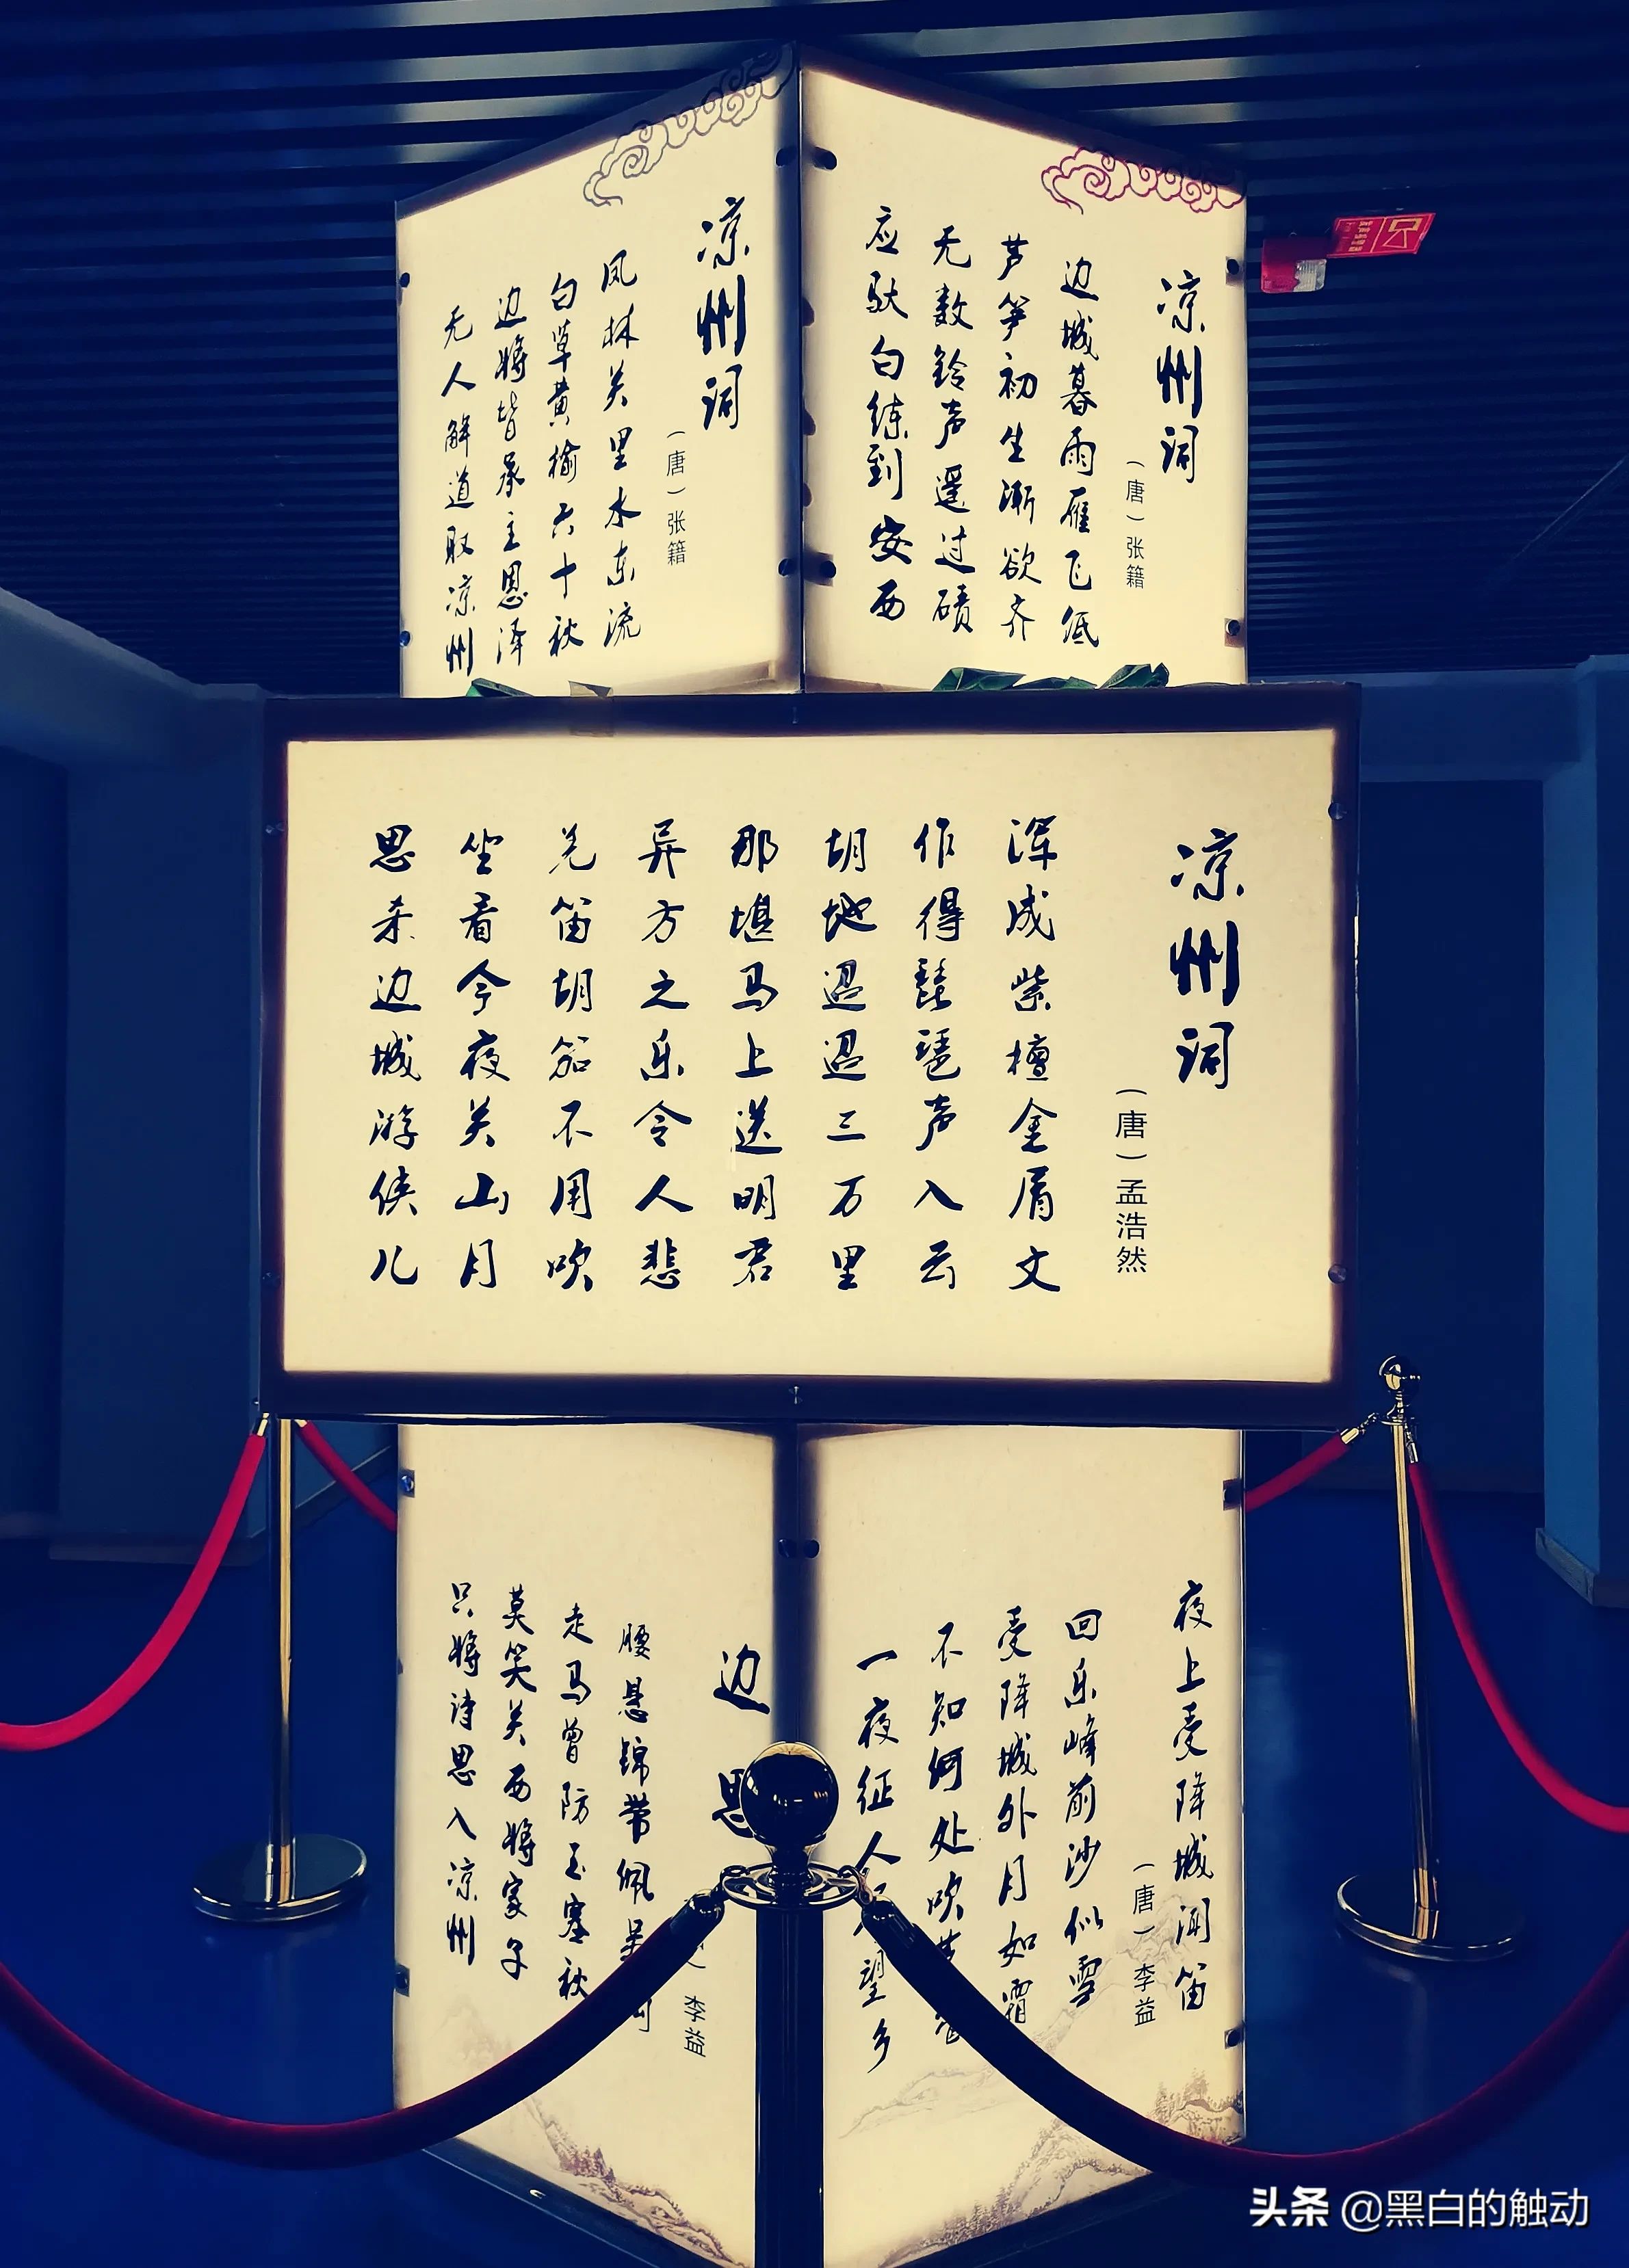 凉州词
（唐）张籍
边城暮雨雁飞低
芦笋初生渐欲齐
无数铃声遥过碛
应驮白练到安西
凉州词
（唐）张籍
凤林关里水东流
白草黄榆六十秋
边将皆承主恩泽
无人解道取凉州
凉州词
（唐）孟浩然
浑成紫檀金屑文
作得琵琶声入云
胡地迢迢三万里
那堪马上送明君
异方之乐令人悲
羌笛胡笳不用吹
坐看今夜关山月
思杀边城游侠儿
夜上受降城闻笛
（唐）李益
回乐峰前沙似雪
受降城外月如霜
不知何处吹
一夜征人望乡
边思
李益
腰悬锦带佩吴
走马曾防玉塞秋
莫笑关西将家子
只将诗思入凉州
头条 @黑白的触动